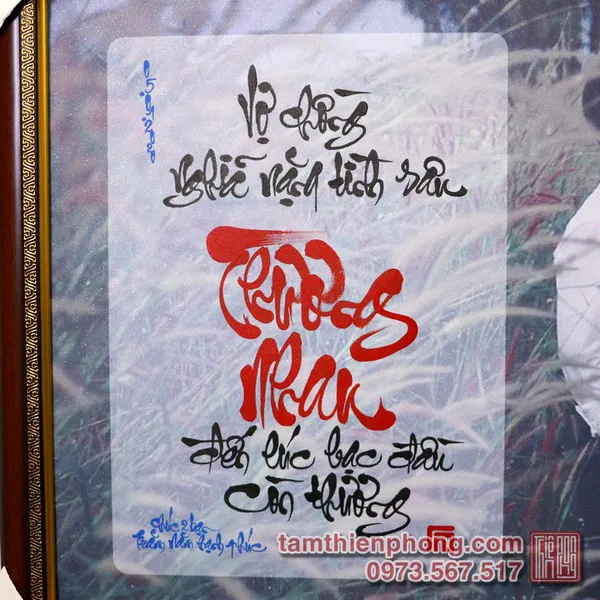 Vợ chồng
nghĩa nặng tình sâu
Thương
nhau
đến lúc bạc đầu
còn thương
chúc 2 bạn
trăm năm hạnh phúc
tamthienphong.com
0973.567.517